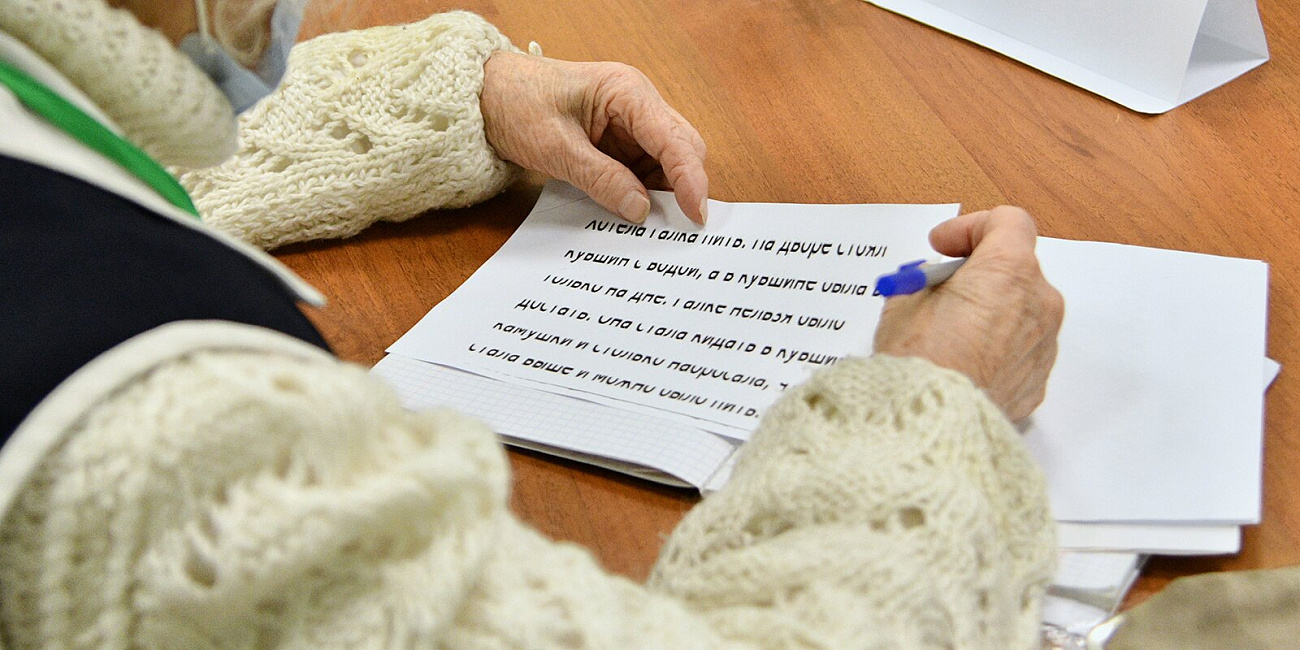 Хотела галка пить. На дворе стоял
кувшин с водой, а в кувшине была
только на дне. Галке нельзя было
достать. Она стала кидать в кувшин
камушки и столько набросала,
стала выше и можно было пить.